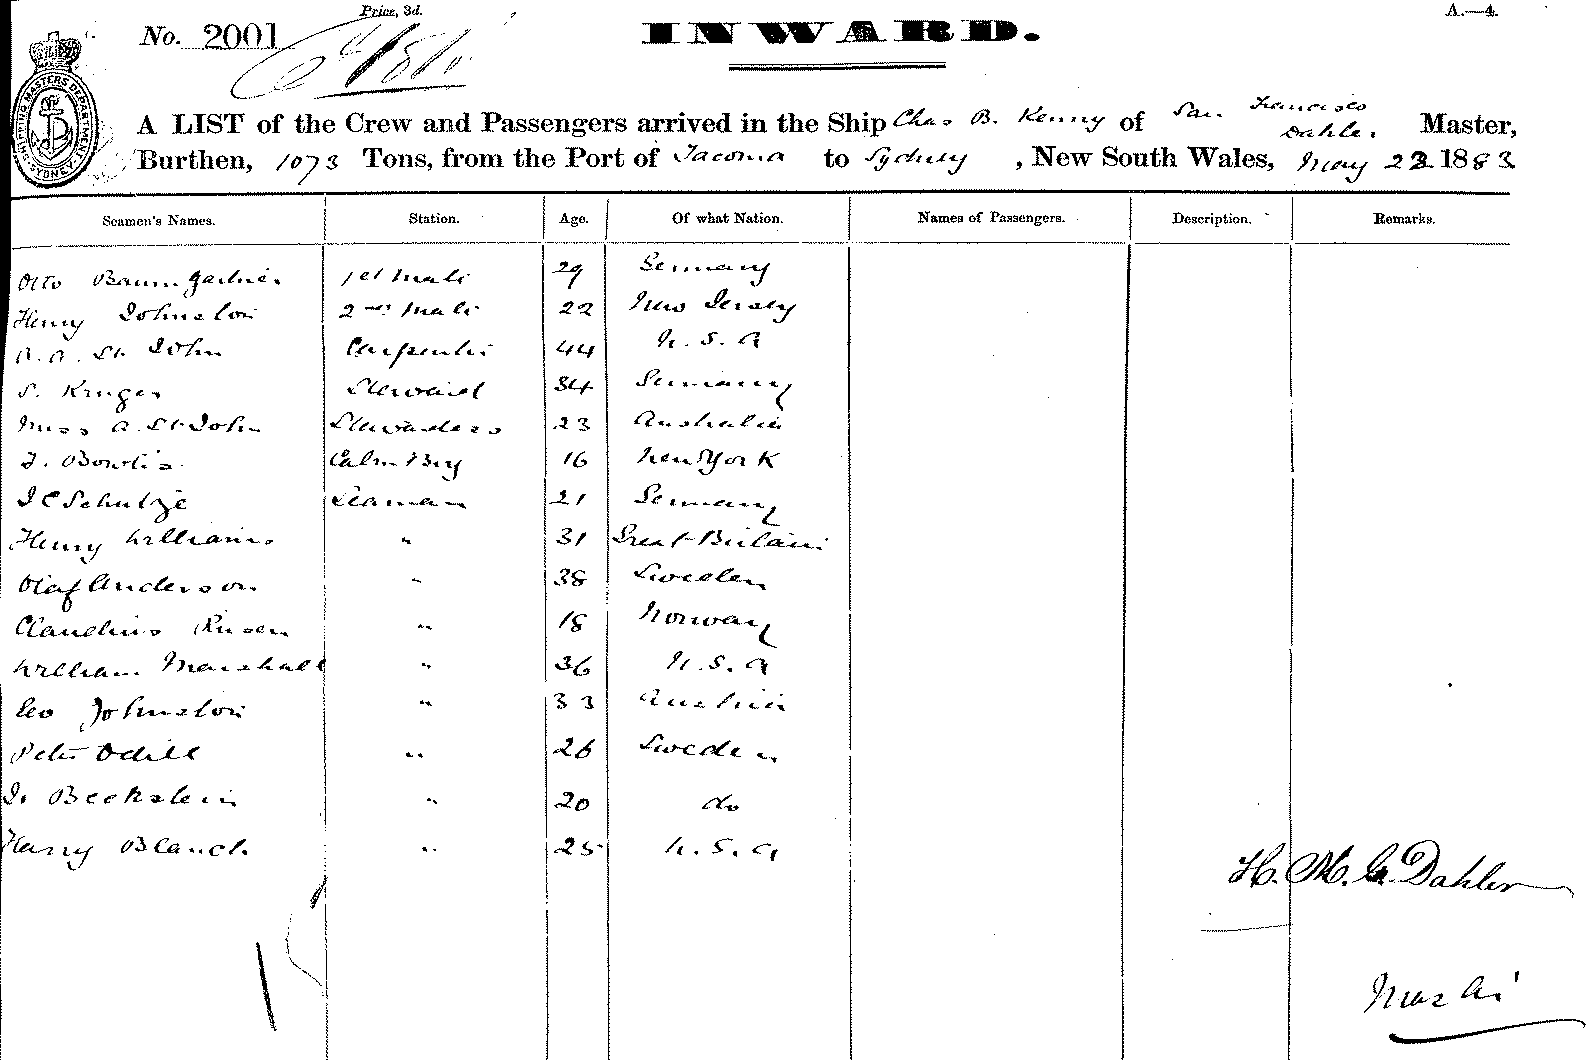 Price, 3d.
A.—4.
No. 2001
INWARD.
SHIPPING MASTERS DEPARTMENT SYDNEY
A LIST of the Crew and Passengers arrived in the Ship Chas B. Kenny of San Francisco Dahler Master,
Burthen, 1073 Tons, from the Port of Tacoma to Sydney, New South Wales, May 23 1883
Seamen's Names. Station. Age. Of what Nation. Names of Passengers. Description. Remarks.
Otto Baumgartner 1st Mate 29 Germany
Henry Johnston 2nd Mate 22 New Jersey
A. A. St John Carpenter 44 U.S.A
S. Kruger Steward 34 Germany
Miss A. St John Stewardess 23 Australia
Cabin Boy 16 New York
J C Schultze Seaman 21 Germany
Henry Williams " 31 Great Britain
Olaf Anderson " 38 Sweden
Claudius " 18 Norway
William Marshall " 36 U.S.A
Geo Johnston " 33 Austria
Peter Odell " 26 Sweden
J. Beckstein " 20 do
Harry Blanch " 25 U.S.A
H. M. G. Dahler
Master